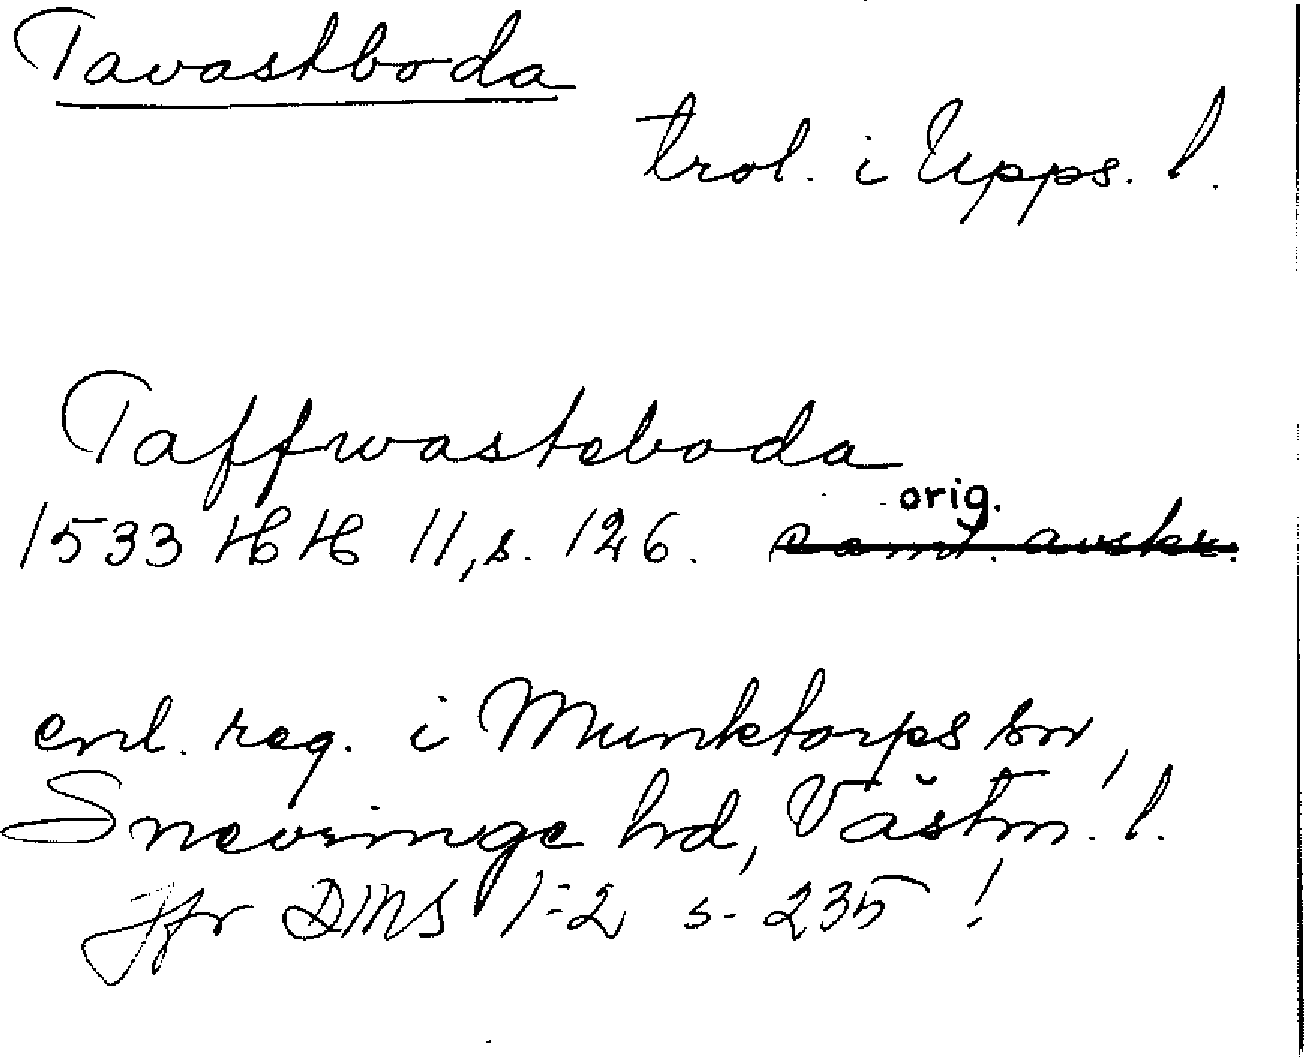 Tavastboda
trol. i Upps. l.
Taffwasteboda
orig.
1533 HH 11, s. 126. samt. avskr.
enl. reg. i Munktorps sn,
Snevringe hd, Västm. l.
Jfr DMS 1:2 s. 235!